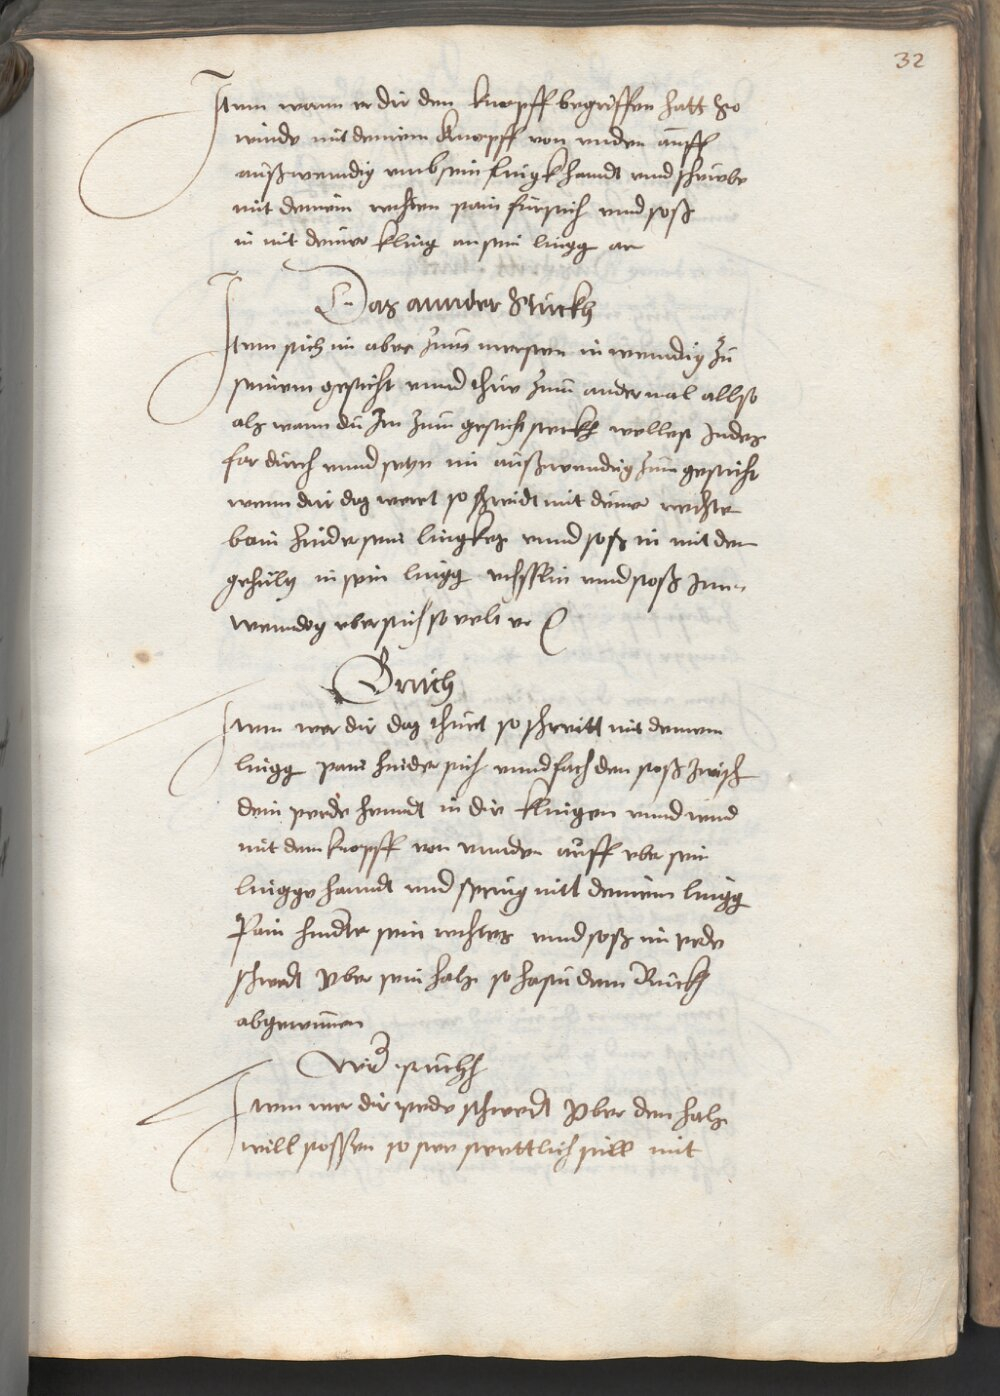 32
Item wann er dir den knopff begriffen hatt So
winde mit deinem knopff von unden auff
außwendig umb sein lingk handt und schreibe
mit deinem rechten pain fürsich und stoß
in mit deiner kling an sein lingg ar
Das annder Stuckh
Item stich im aber zum ersten inwendig zu
seinem gesicht unnd thue zum ander mal allso
als wann du Im zum gesicht stechk wellest Indes
far durch unnd setze im außwendig zum gesicht
wenn dir das weret so schreidt mit deine rechte
bain hinder sein lingkes unnd stoß in mit dem
gehultz in sein lingg vchsslin und stoß Inn
wenndog ubersich so velt er
Bruch
Item wer dir das thuet so schreitt mit deinem
lingg pain hinder sich unnd fach den stoß zwisch
dein peede hendt in die klingen unnd wind
mit dem knopff von unnden auff uber sein
lingge hanndt und spring mitt deinem lingg
Pain hinder sein rechtes und stoß im pede
schwerdt Vber sein hals so hastu dem Ruckh
abgewunnen
Wider stuckh
Item wer dir pede schwerdt Vber den hals
will stossen so stee stettlich still mit